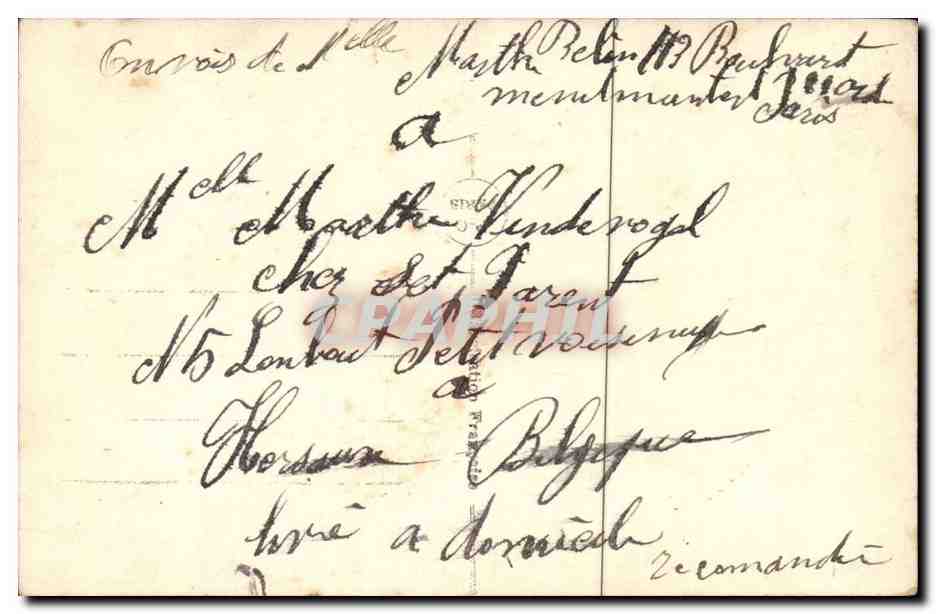 Envois de Melle Marthe Belin 113 Boulevart
menilmontant
Paris
a
Melle Marthe Vindevogel
chez set Parent
N5 Lonbaut Petit voisinage
a
Belgique
livré a domicile
recomandée
CPAPHIL